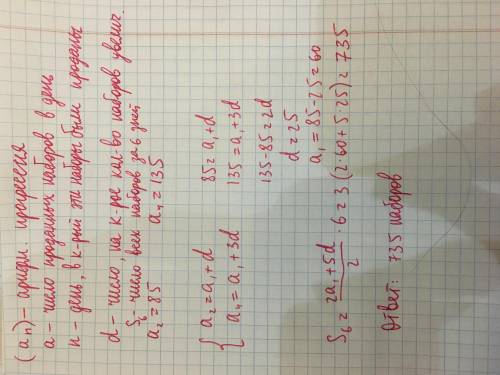 (an) – арифм. прогрессия
a – число проданных наборов в день
n – день, в к-рый эти наборы были проданы
d – число, на к-рое кол-во наборов увелич.
S₆ – число всех наборов за 6 дней
a₂ = 85 a₄ = 135
{ a₂ = a₁ + d 85 = a₁ + d
a₄ = a₁ + 3d 135 = a₁ + 3d
135 - 85 = 2d
d = 25
a₁ = 85 - 25 = 60
S₆ = (2a₁ + 5d)/2 · 6 = 3 (2·60 + 5·25) = 735
Ответ: 735 наборов